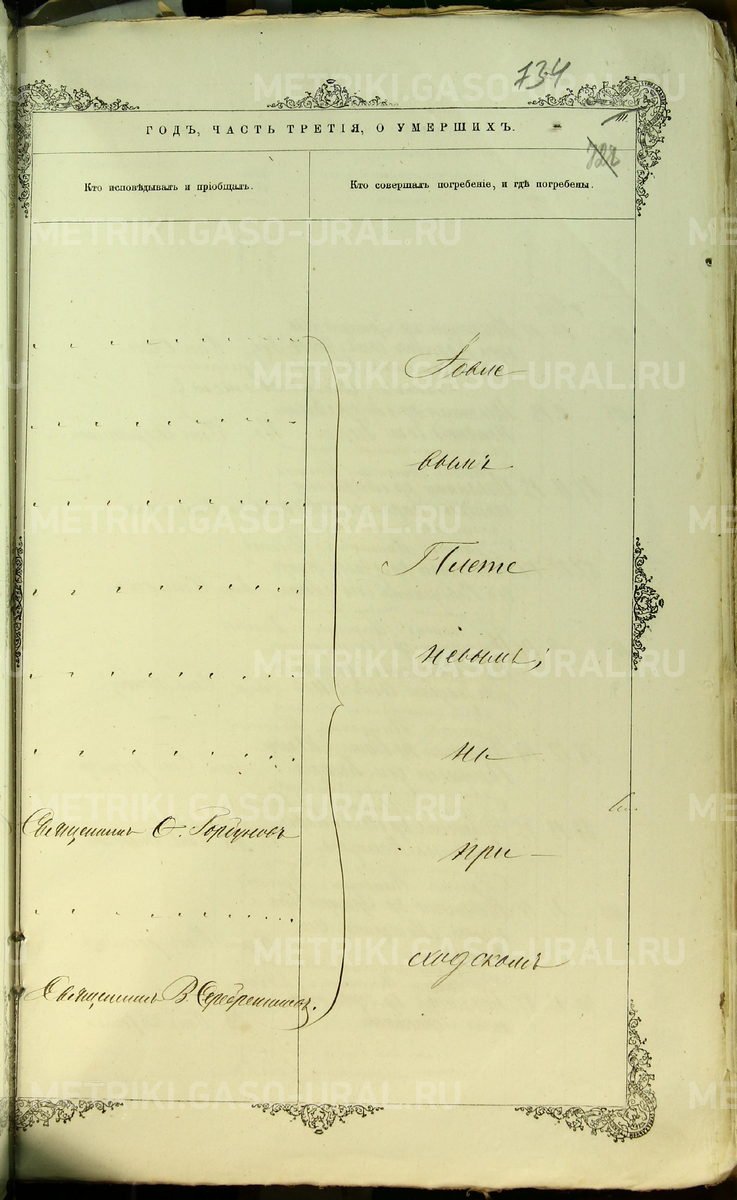 734
ГОДЪ, ЧАСТЬ ТРЕТІЯ, О УМЕРШИХЪ.
Кто исповѣдывалъ и пріобщалъ.
Кто совершалъ погребеніе, и гдѣ погребены.
METRIKI.GASO-URAL.RU
вымъ
Плете
невымъ;
на
Священникъ С. Горбуновъ
при
сходскомъ
Священникъ В Серебренниковъ.